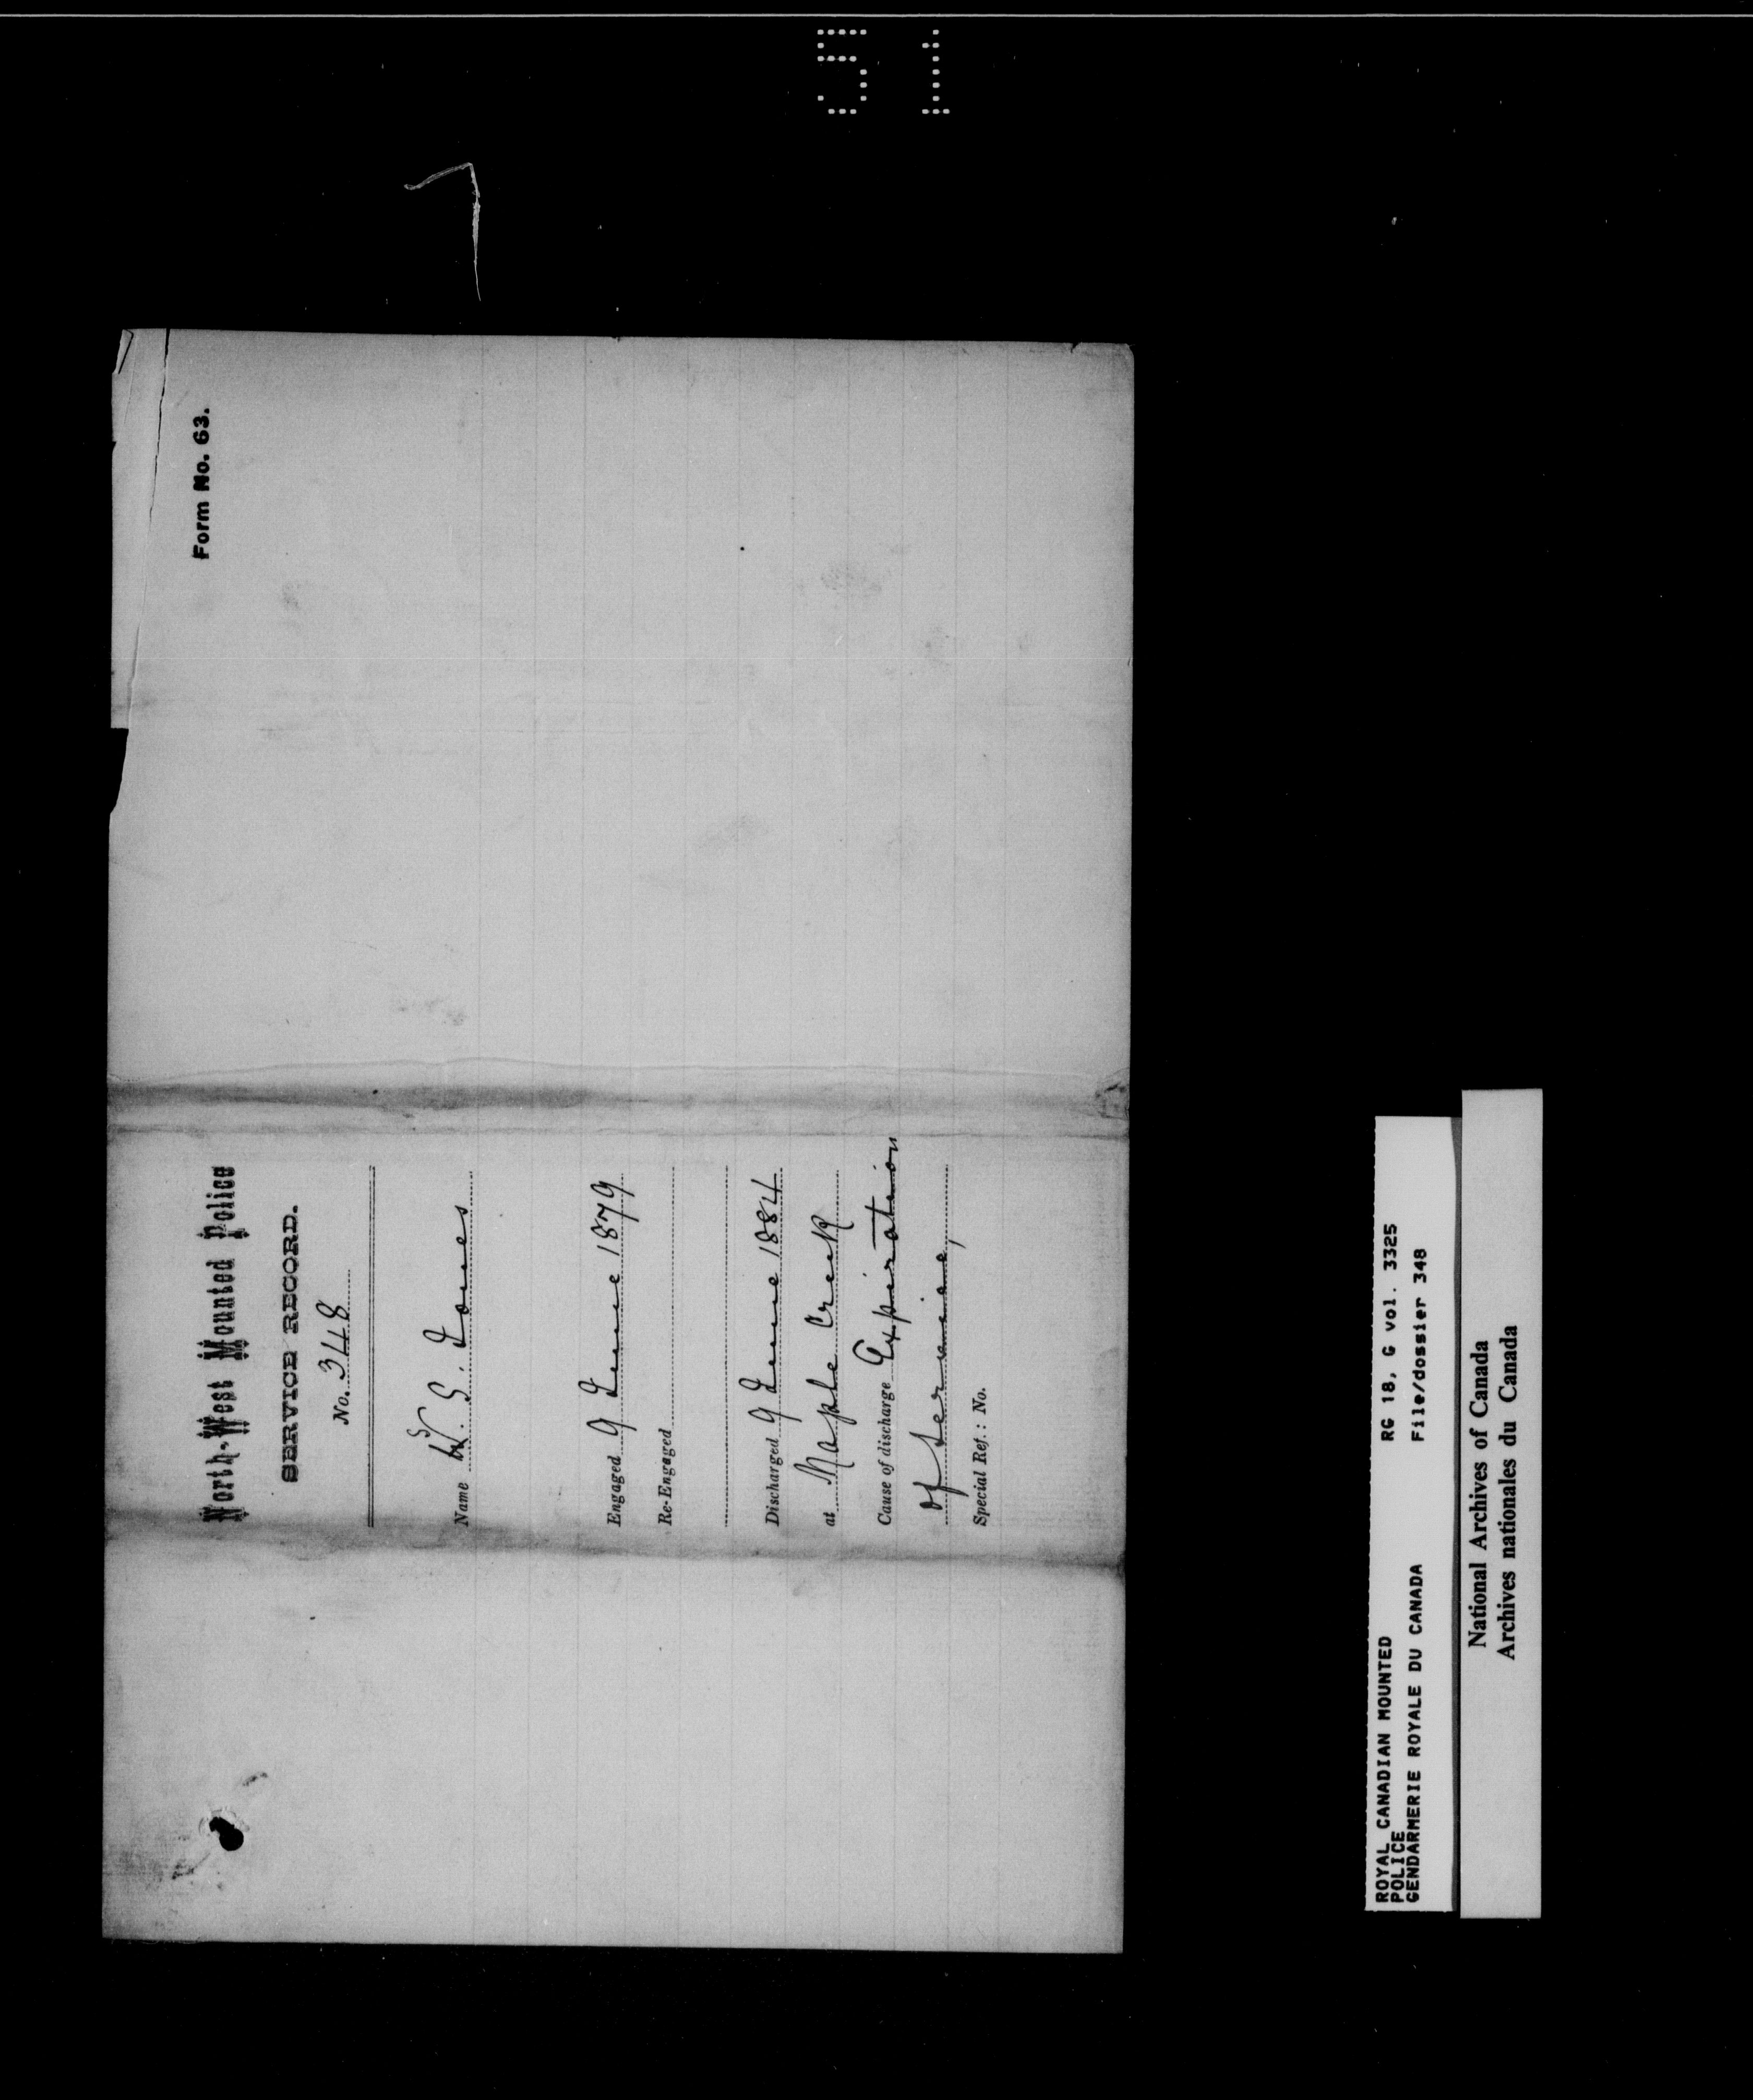 Form No. 63.
North-West Mounted Police
SERVICE RECORD.
No. 348
Name W. S. Jones
Engaged 9 June 1879
Re-Engaged
Discharged 9 June 1884
at Maple Creek
Cause of discharge Expiration
of Service,
Special Ref.: No.
ROYAL CANADIAN MOUNTED
POLICE
GENDARMERIE ROYALE DU CANADA
RG 18, G vol. 3325
File/dossier 348
National Archives of Canada
Archives nationales du Canada